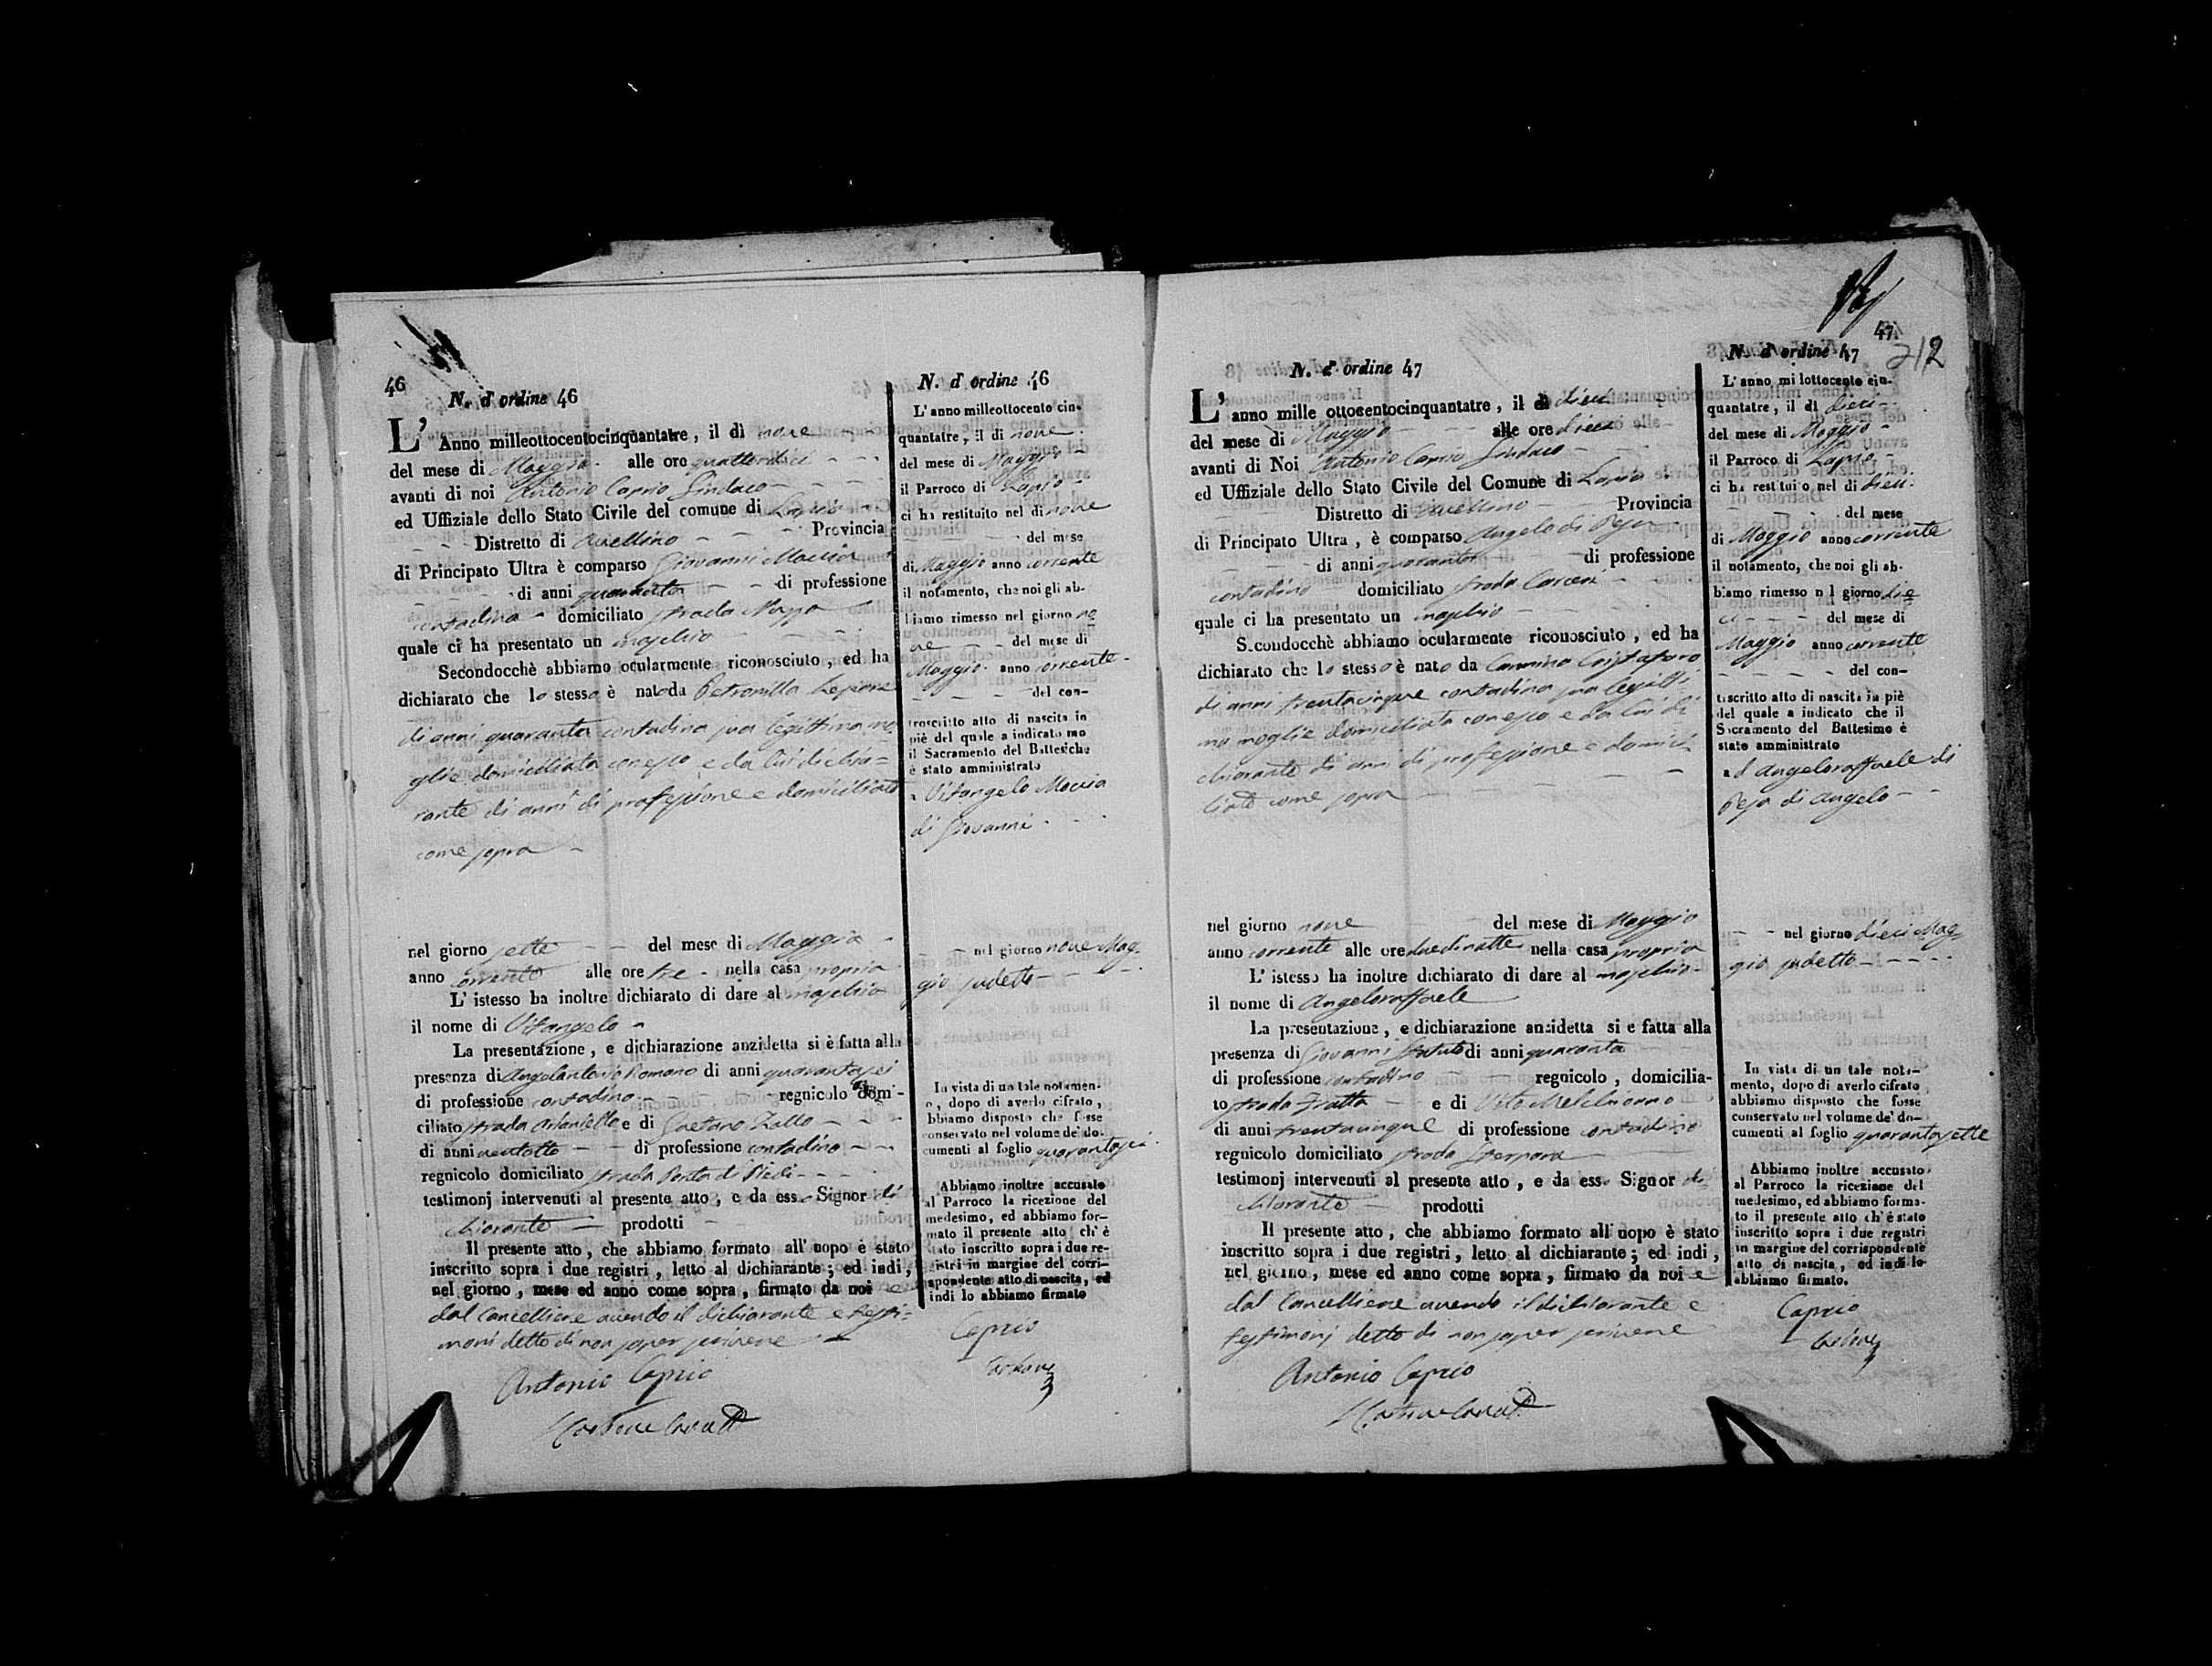 46
N. d' ordine 46
L' Anno milleottocentocinquantatre, il dì nove
del mese di Maggio alle ore quattordici
avanti di noi Antonio Caprio Sindaco
ed Uffiziale dello Stato Civile del comune di Lapio
Distretto di Avellino Provincia
di Principato Ultra è comparso Giovanni Moccia
di anni quaranta di professione
contadino domiciliato strada
quale ci ha presentato un maschio
Secondocchè abbiamo ocularmente riconosciuto, ed ha
dichiarato che lo stesso è nato da Petronilla
di anni quaranta contadina sua legittima mo
glie domiciliata con esso e da lui dichia=
rante di anni di professione e domiciliato
come sopra
nel giorno sette del mese di Maggio
anno corrente alle ore tre nella casa propria
L' istesso ha inoltre dichiarato di dare al maschio
il nome di Vitangelo
La presentazione, e dichiarazione anzidetta si è fatta alla
presenza di Angelantonio Romano di anni quarantasei
di professione contadino regnicolo domi-
ciliato strada e di Gaetano Zollo
di anni ventotto di professione contadino
regnicolo domiciliato strada Porta di Piedi
testimonj intervenuti al presente atto, e da esso Signor di
chiarante prodotti
Il presente atto, che abbiamo formato all' uopo è stato
inscritto sopra i due registri, letto al dichiarante; ed indi,
nel giorno, mese ed anno come sopra, firmato da noi e
dal Cancelliere avendo il dichiarante e testi=
moni detto di non saper scrivere
Antonio Caprio
N. d' ordine 46
L' anno milleottocento cin-
quantatre, il di nove
del mese di Maggio
il Parroco di Lapio
ci ha restituito nel di nove
del mese
di Maggio anno corrente
il notamento, che noi gli ab-
biamo rimesso nel giorno no
ve del mese di
Maggio anno corrente
del con-
troscritto atto di nascita in
piè del quale a indicato mo
il Sacramento del Battesiche
è stato amministrato
a Vitangelo Moccia
di Giovanni
nel giorno nove Mag-
gio sudetto
In vista di un tale notamen-
o, dopo di averlo cifrato,
bbiamo disposto che fosse
conservato nel volume de' do-
cumenti al foglio quarantasei
Abbiamo inoltre accusato
al Parroco la ricezione del
medesimo, ed abbiamo for-
mato il presente atto ch' è
stato inscritto sopra i due re-
gistri in margine del corri-
spondente atto di nascita, ed
indi lo abbiamo firmato
Caprio
47
212
N. d' ordine 47
L' anno mille ottocentocinquantatre, il di dieci
del mese di Maggio alle ore dieci
avanti di Noi Antonio Caprio Sindaco
ed Uffiziale dello Stato Civile del Comune di Lapio
Distretto di Avellino Provincia
di Principato Ultra, è comparso Angelo di Peso
di anni quaranta di professione
contadino domiciliato strada Carceri
quale ci ha presentato un maschio
Secondocchè abbiamo ocularmente riconosciuto, ed ha
dichiarato che lo stesso è nato da Carmina Cristofaro
di anni trentacinque contadina sua legitti
ma moglie domiciliata con esso e da lui di
chiarante di anni di professione e domici
liato come sopra
nel giorno nove del mese di Maggio
anno corrente alle ore due di notte nella casa propria
L' istesso ha inoltre dichiarato di dare al maschio
il nome di Angeloraffaele
La presentazione, e dichiarazione anzidetta si e fatta alla
presenza di Giovanni di anni quaranta
di professione contadino regnicolo, domicilia-
to strada Fratta e di Vito
di anni trentacinque di professione contadino
regnicolo domiciliato strada
testimonj intervenuti al presente atto, e da esso Signor di
chiarante prodotti
Il presente atto, che abbiamo formato all' uopo è stato
inscritto sopra i due registri, letto al dichiarante; ed indi,
nel giorno, mese ed anno come sopra, firmato da noi e
dal Cancelliere avendo il dichiarante e
testimonj detto di non saper scrivere
Antonio Caprio
N. d' ordine 47
L' anno mi lottocento cin-
quantatre, il di dieci
del mese di Maggio
il Parroco di Lapio
ci ha restituio nel di dieci
del mese
di Maggio anno corrente
il notamento, che noi gli ab-
biamo rimesso n l giorno die
ci del mese di
Maggio anno corrente
del con-
troscritto atto di nascita in piè
del quale a indicato che il
Sacramento del Battesimo è
stato amministrato
ad Angeloraffaele di
Peso di Angelo
nel giorno dieci Mag-
gio sudetto
In vista di un tale nota-
mento, dopo di averlo cifrato
abbiamo disposto che fosse
conservato nel volume de' do-
cumenti al foglio quarantasette
Abbiamo inoltre accusato
al Parroco la ricezione del
medesimo, ed abbiamo forma-
to il presente atto ch' è stato
inscritto sopra i due registri
in margine del corrispondente
atto di nascita, ed indi lo
abbiamo firmato.
Caprio